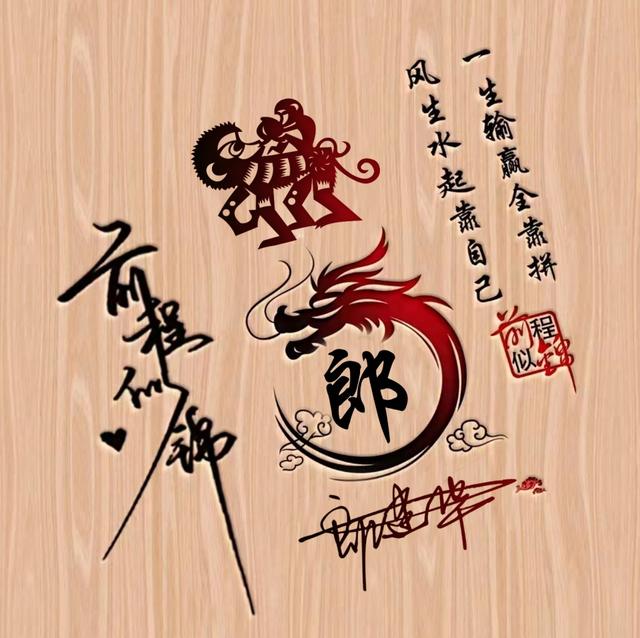 一生输赢全靠拼
风生水起靠自己
前程似锦
前程似锦
郎